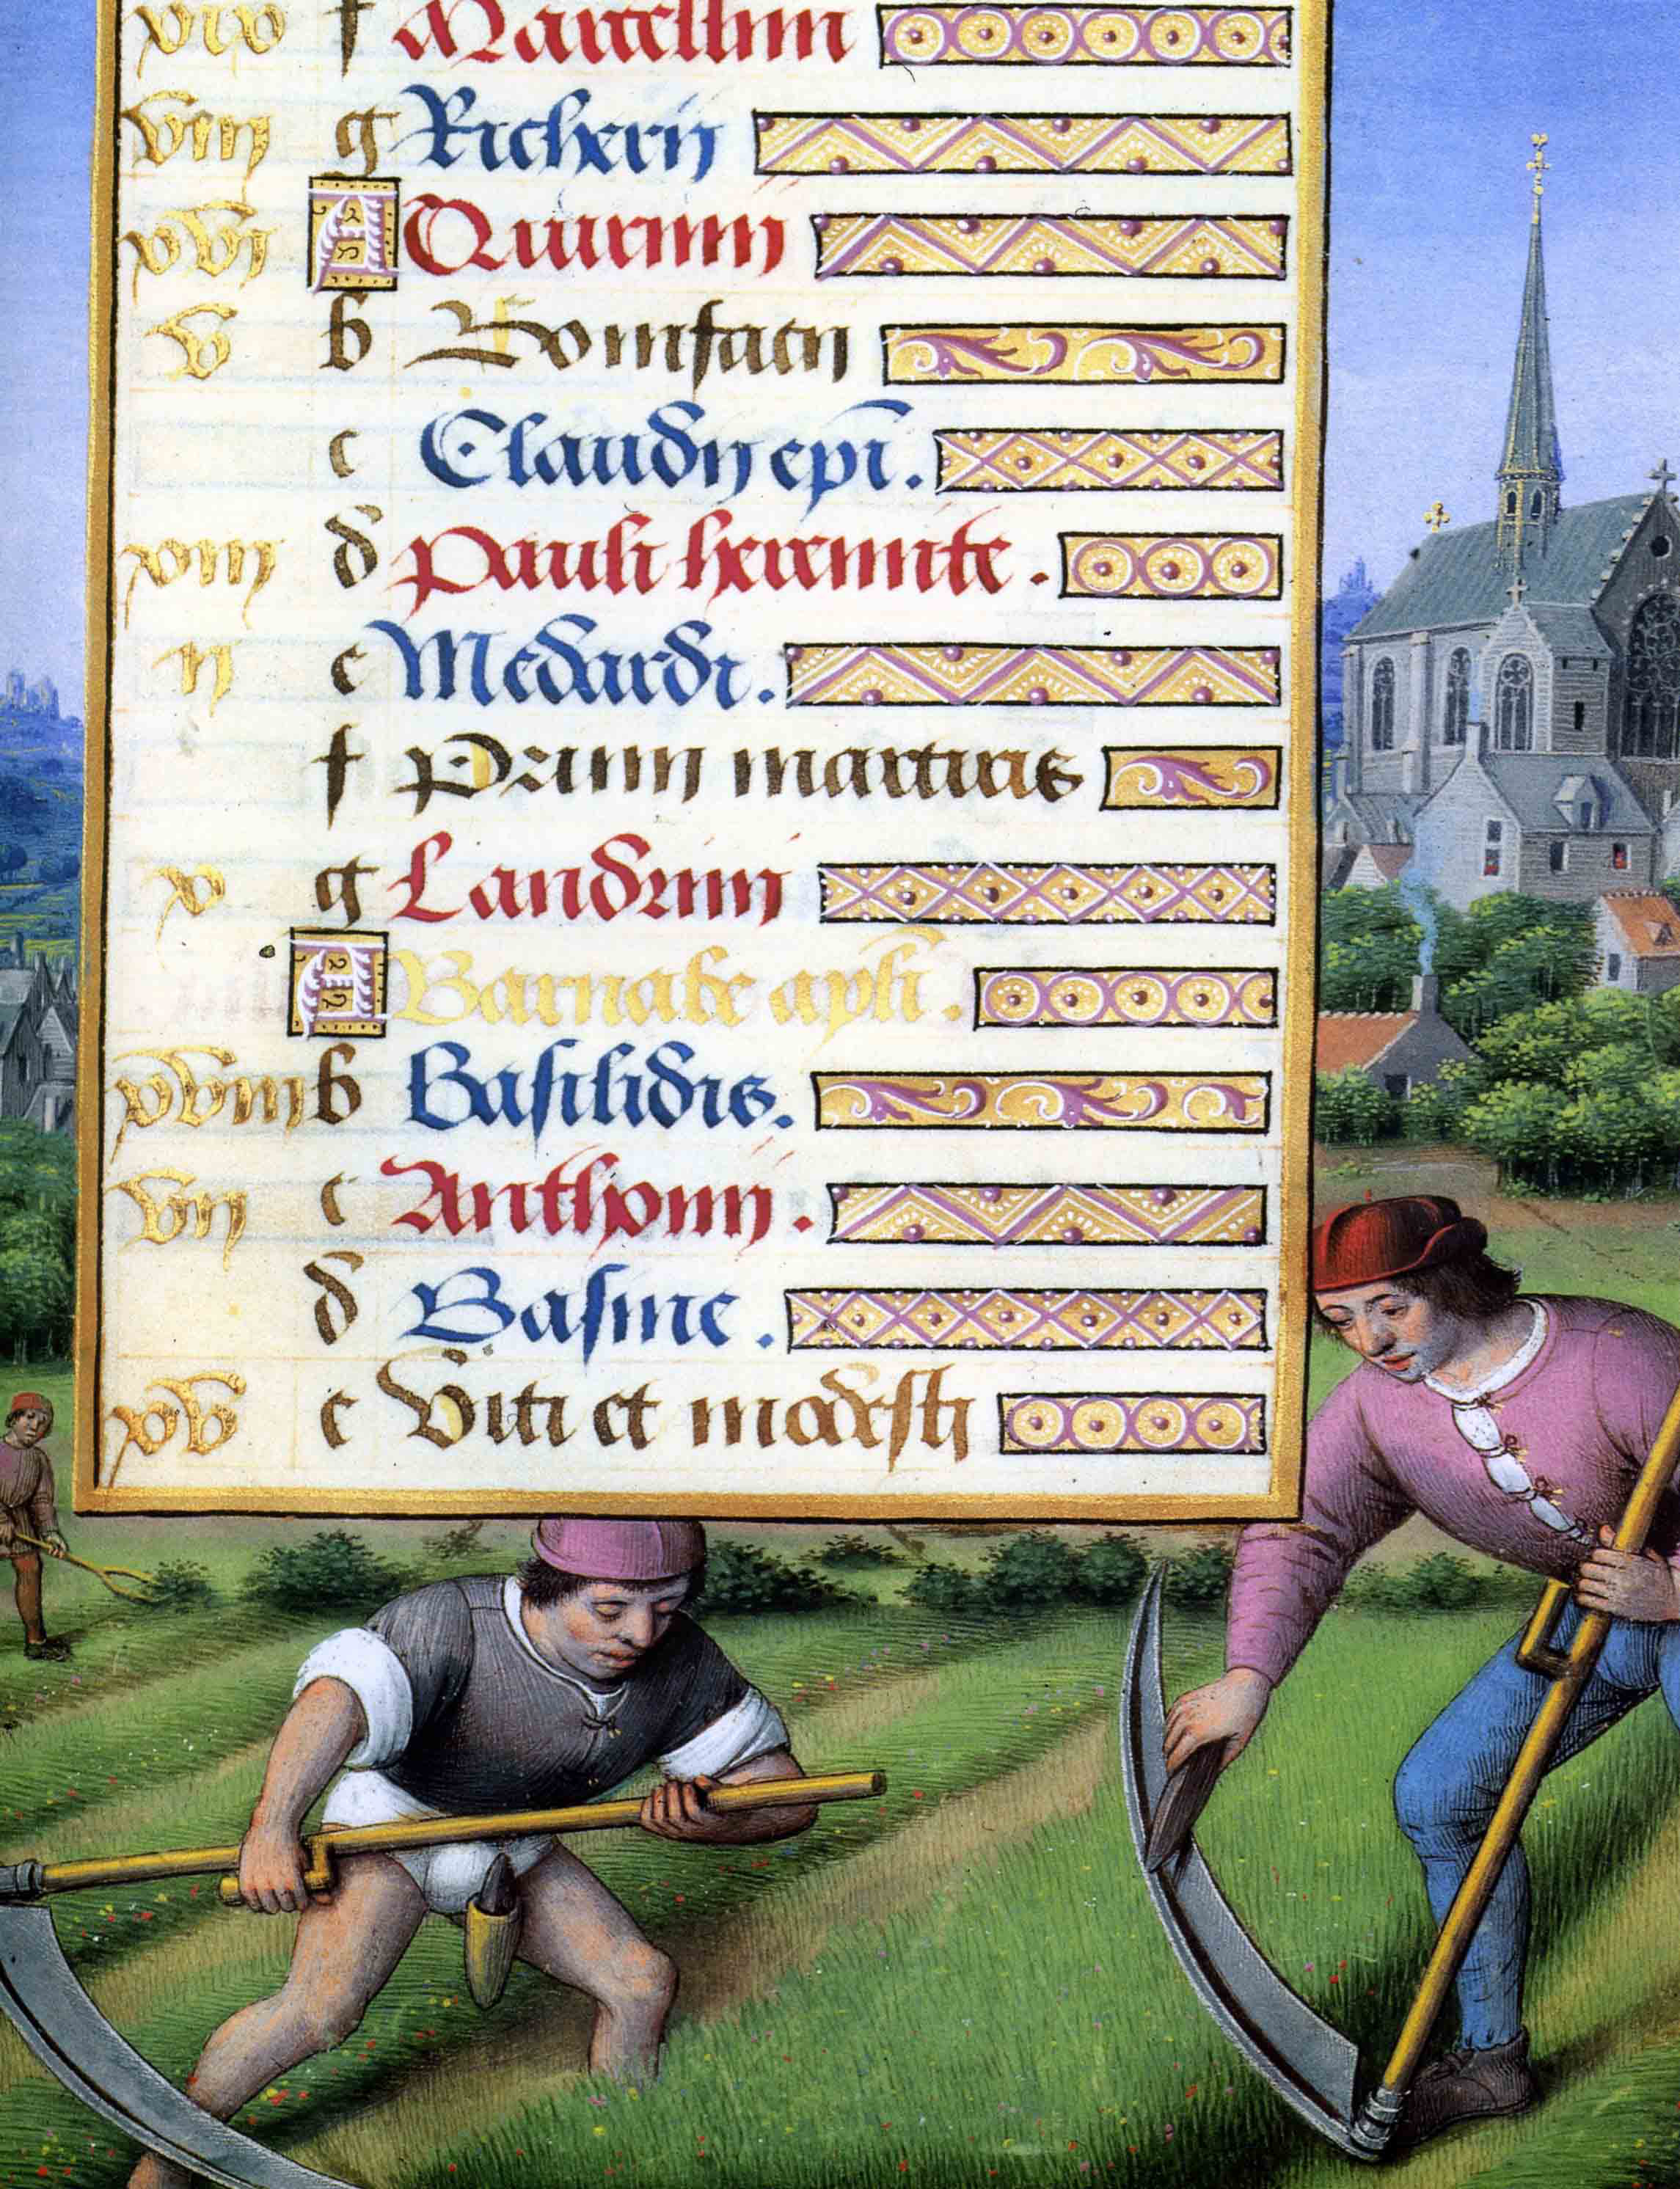 xix f Marcellini
viii g Richerii
xvi A Quirinii
v b Bonifacii
c Claudii epi.
xiii d Pauli heremite.
ii e Medardi.
f Primi martiris
x g Landrini
A Barnabe apli.
xviii b Basilidis.
vii c Anthonii.
d Basine.
xv e Viti et modesti